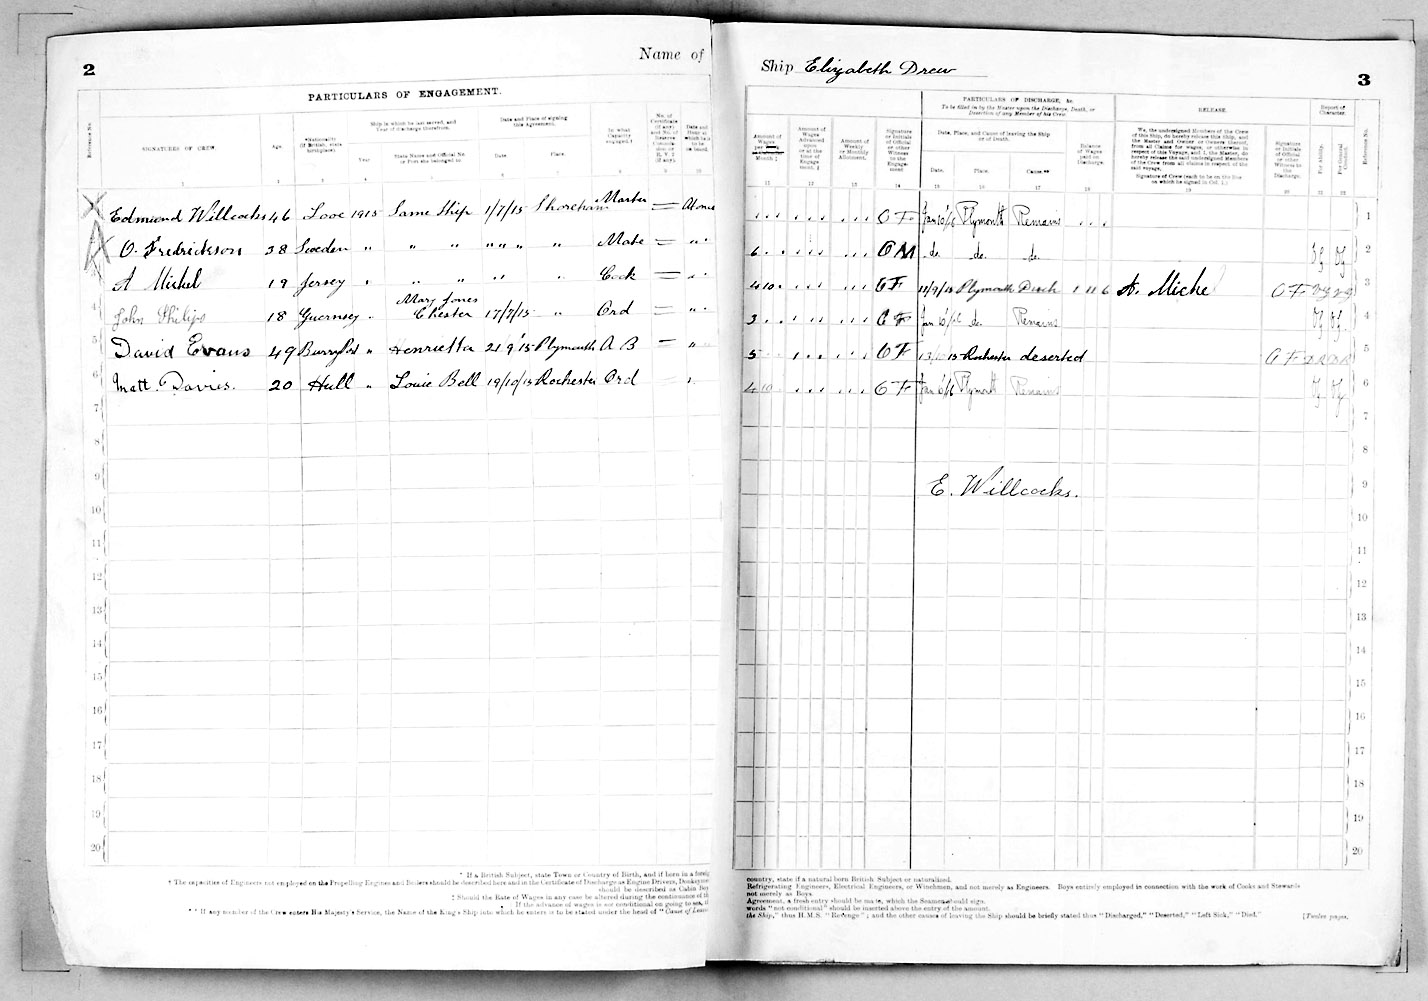 2
Name of
PARTICULARS OF ENGAGEMENT.
Reference No.
SIGNATURES OF CREW.
Age
*Nationality
(If British, state
birthplace).
Ship in which he last served, and
Year of discharge therefrom.
Year
State Name and Official No.
or Port she belonged to.
Date and Place of signing
this Agreement.
Date
Place.
In what
Capacity
engaged.†
No. of
Certificate
(if any)
Date and
Hour at
which he is
to be
on board.
1 2 3 4 5 6 7 8 9 10
Edmund Willcocks 46 Looe 1915 Same Ship 1/7/15 Shoreham Master — At once
O. Fredrickson 38 Sweden " " " " " " " Mate — " "
A Michel 19 Jersey " " " " " " Cook — " "
John Philips 18 Guernsey " Mary Jones
Chester 17/7/15 " Ord — " "
David Evans 49 Burry Port " Henrietta 21 9/15 Plymouth A B — "
Matt. Davies. 20 Hull " Louie Bell 19/10/15 Rochester Ord — "
4
5
6
7
8
9
10
11
12
13
14
15
16
17
18
19
20
* If a British Subject, state Town or Country of Birth, and if born in a foreig
† The capacities of Engineers not employed on the Propelling Engines and Boilers should be described here and in the Certificate of Discharge as Engine Drivers, Donkeymen
should be described as Cabin Boy
‡ Should the Rate of Wages in any case be altered during the continuance of th
If the advance of wages is not conditional on going to sea, th
** If any member of the Crew enters His Majesty's Service, the Name of the King's Ship into which he enters is to be stated under the head of "Cause of Leavi
Ship Elizabeth Drew
3
PARTICULARS OF DISCHARGE, &c.
To be filled in by the Master upon the Discharge, Death, or
Desertion of any Member of his Crew.
RELEASE.
Report of
Character.
Amount of
Wages
per
Month‡
Amount of
Wages
Advanced
upon
or at the
time of
Engage-
ment.
Amount of
Weekly
or Monthly
Allotment.
Signature
or Initials
of Official
or other
Witness
to the
Engage-
ment
Date, Place, and Cause of leaving the Ship
or of Death.
Date.
Place.
Cause.**
Balance
of Wages
paid on
Discharge.
We, the undersigned Members of the Crew
of this Ship, do hereby release this Ship, and
the Master and Owner or Owners thereof,
from all Claims for wages, or otherwise in
respect of this Voyage, and I, the Master, do
hereby release the said undersigned Members
of the Crew from all claims in respect of the
said voyage.
Signature of Crew (each to be on the line
on which he signed in Col. 1.)
Signature
or Initials
of Official
or other
Witness to
the
Discharge.
For Ability.
For General
Conduct.
Reference No.
11 12 13 14 15 16 17 18 19 20 21 22
O F Plymouth Remains 1
6 O M do. do. do. VG VG 2
4 10 O F 11/9/15 Plymouth Disch 1 11 6 A. Miche O F VG VG 3
3 O F do. Remains VG VG 4
5 O F Rochester deserted O F 5
4 10 O F Plymouth Remains VG VG 6
7
8
E. Willcocks. 9
10
11
12
13
14
15
16
17
18
19
20
country, state if a natural born British Subject or naturalized.
Refrigerating Engineers, Electrical Engineers, or Winchmen, and not merely as Engineers. Boys entirely employed in connection with the work of Cooks and Stewards
not merely as Boys.
Agreement, a fresh entry should be made, which the Seamen should sign.
words "not conditional" should be inserted above the entry of the amount.
the Ship," thus H.M.S. "Revenge"; and the other causes of leaving the Ship should be briefly stated thus "Discharged," "Deserted," "Left Sick," "Died."
[Twelve pages.